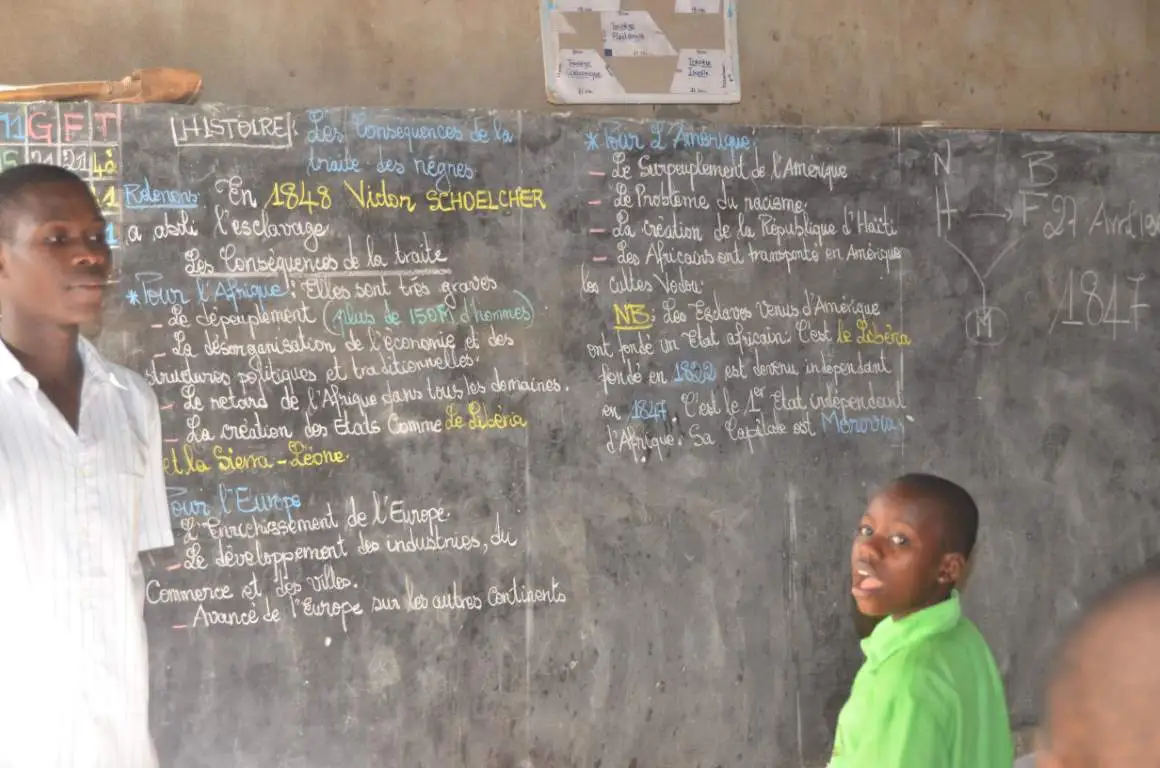 G F T
HISTOIRE: Les Conséquences de la
traite des nègres
Retenons: En 1848 Victor SCHOELCHER
a aboli l'esclavage
Les Conséquences de la traite
*Pour l'Afrique: Elles sont très graves
- Le dépeuplement (plus de 150M d'hommes)
- La désorganisation de l'économie et des
structures politiques et traditionnelles.
- Le retard de l'Afrique dans tous les domaines.
- La création des Etats Comme Le Libéria
et la Sierra-Léone.
Pour l'Europe
- L'Enrichissement de l'Europe.
- Le développement des industries, du
Commerce et des villes.
- Avance de l'Europe sur les autres Continents
*Pour L'Amérique:
- Le Surpeuplement de l'Amérique
- Le Problème du racisme.
- La création de la République d'Haïti
- Les Africains ont transporté en Amérique
les cultes Vodou.
NB: Les Esclaves Venus d'Amérique
ont fondé un Etat africain: C'est le Libéria
fondé en 1822 est devenu indépendant
en 1847. C'est le 1er Etat indépendant
d'Afrique. Sa Capitale est Monrovia.
N B
H → F
M
27 Avril
1847